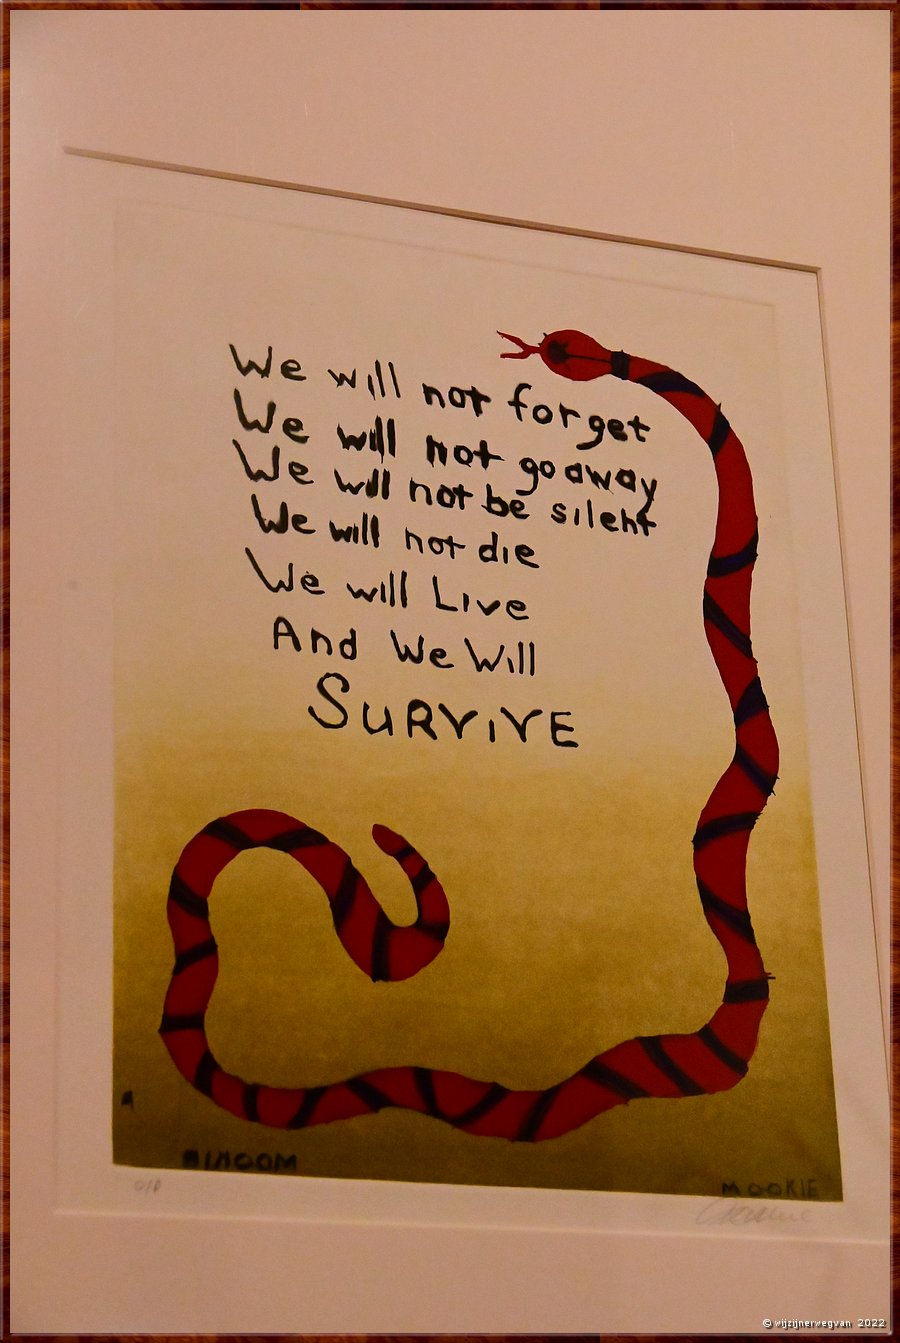 We will not forget
We will not go away
We will not be silent
We will not die
We will Live
And We Will
SURVIVE
MOOKIE
© wijzijnerwegvan 2022